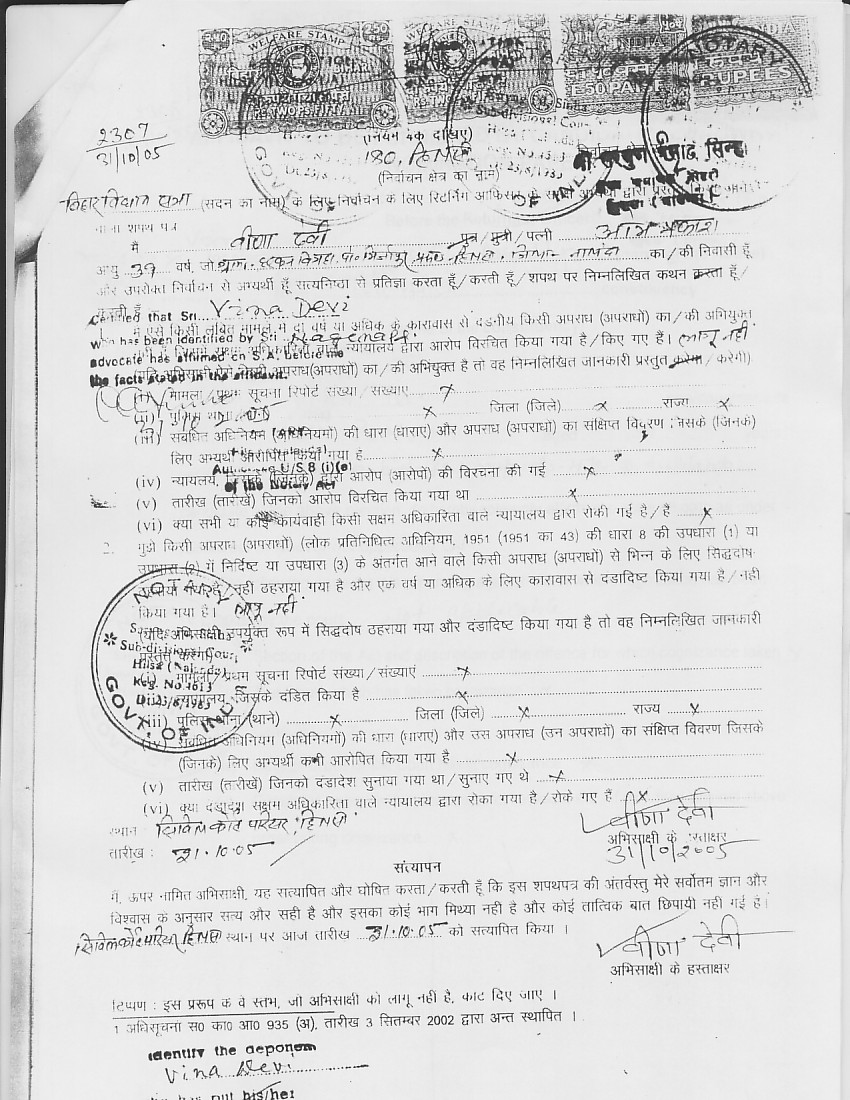 WELFARE STAMP
WELFARE STAMP
INDIA
RUPEES
NOTARY
2307
31/10/05
(नियम 4क देखिए)
180, हिलसा
(निर्वाचन क्षेत्र का नाम)
बिहार विधान सभा (सदन का नाम) के लिए निर्वाचन के लिए रिटर्निंग आफिसर के समक्ष अभ्यर्थी द्वारा प्रस्तुत किया जाने
वाला शपथ पत्र
मैं वीणा देवी पुत्र/पुत्री/पत्नी ओम प्रकाश
आयु 37 वर्ष, जो ग्राम का/की निवासी हूँ
और उपरोक्त निर्वाचन से अभ्यर्थी हूँ सत्यनिष्ठा से प्रतिज्ञा करता हूँ/करती हूँ/शपथ पर निम्नलिखित कथन करता हूँ/
करती हूँ
Certified that Sri Vina Devi
मैं ऐसे किसी लंबित मामले में दो वर्ष या अधिक के कारावास से दंडनीय किसी अपराध (अपराधों) का/की अभियुक्त
who has been identified by Sri
वाले न्यायालय द्वारा आरोप विरचित किया गया है/किए गए हैं। लागू नहीं
advocate has affirmed on S.A. before me
(यदि अभिसाक्षी ऐसे किसी अपराध(अपराधों) का/की अभियुक्त है तो वह निम्नलिखित जानकारी प्रस्तुत करेगा/करेगी)
the facts stated in the affidavit.
(i) मामला/प्रथम सूचना रिपोर्ट संख्या/संख्याएं x
(ii) पुलिस थाना x जिला (जिले) x राज्य x
(iii) संबंधित अधिनियम (अधिनियमों) की धारा (धाराएं) और अपराध (अपराधों) का संक्षिप्त विवरण जिसके (जिनके)
लिए अभ्यर्थी आरोपित किया गया है x
(iv) न्यायालय, जिसके (जिनके) द्वारा आरोप (आरोपों) की विरचना की गई x
U/S 8 (i)(e)
of the Notary Act
(v) तारीख (तारीखें) जिनको आरोप विरचित किया गया था x
(vi) क्या सभी या कोई कार्यवाही किसी सक्षम अधिकारिता वाले न्यायालय द्वारा रोकी गई है/है x
2. मुझे किसी अपराध (अपराधों) (लोक प्रतिनिधित्व अधिनियम, 1951 (1951 का 43) की धारा 8 की उपधारा (1) या
उपधारा (2) में निर्दिष्ट या उपधारा (3) के अंतर्गत आने वाले किसी अपराध (अपराधों) से भिन्न के लिए सिद्धदोष
ठहराया गया है/नहीं ठहराया गया है और एक वर्ष या अधिक के लिए कारावास से दंडादिष्ट किया गया है/नहीं
किया गया है। लागू नहीं
(यदि अभिसाक्षी उपर्युक्त रूप में सिद्धदोष ठहराया गया और दंडादिष्ट किया गया है तो वह निम्नलिखित जानकारी
प्रस्तुत करेगा)
NOTARY
Sub-divisional Court
Hilsa (Nalanda)
Reg. No. 4613
Dt. 23/8/1983
GOVT. OF IND
(i) मामला/प्रथम सूचना रिपोर्ट संख्या/संख्याएं x
(ii) न्यायालय, जिसके दंडित किया है x
(iii) पुलिस थाना (थाने) x जिला (जिले) x राज्य x
(iv) संबंधित अधिनियम (अधिनियमों) की धारा (धाराएं) और उस अपराध (उन अपराधों) का संक्षिप्त विवरण जिसके
(जिनके) लिए अभ्यर्थी कभी आरोपित किया गया है x
(v) तारीख (तारीखें) जिनको दंडादेश सुनाया गया था/सुनाए गए थे x
(vi) क्या दंडादेश सक्षम अधिकारिता वाले न्यायालय द्वारा रोका गया है/रोके गए हैं x
स्थान : सिविल कोर्ट परिसर, हिलसा
वीणा देवी
अभिसाक्षी के हस्ताक्षर
तारीख : 31.10.05
31/10/2005
सत्यापन
मैं, ऊपर नामित अभिसाक्षी, यह सत्यापित और घोषित करता/करती हूँ कि इस शपथपत्र की अंतर्वस्तु मेरे सर्वोतम ज्ञान और
विश्वास के अनुसार सत्य और सही है और इसका कोई भाग मिथ्या नही है और कोई तात्विक बात छिपायी नही गई है।
सिविल कोर्ट परिसर हिलसा स्थान पर आज तारीख 31.10.05 को सत्यापित किया ।
वीणा देवी
अभिसाक्षी के हस्ताक्षर
टिप्पण : इस प्ररूप के वे स्तंभ, जो अभिसाक्षी को लागू नहीं है, काट दिए जाए ।
1 अधिसूचना स0 का0 आ0 935 (अ), तारीख 3 सितम्बर 2002 द्वारा अन्त स्थापित ।
identify the deponent
Vina Devi
has put his/her